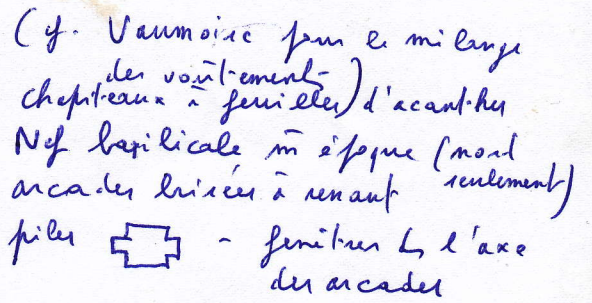 (cf. Vaumoise pour le mélange
des voûtements)
chapiteaux à feuilles d'acanthes
Nef basilicale m̄ époque (nord
seulement)
arcades brisées à
piles - fenêtres ds l'axe
des arcades